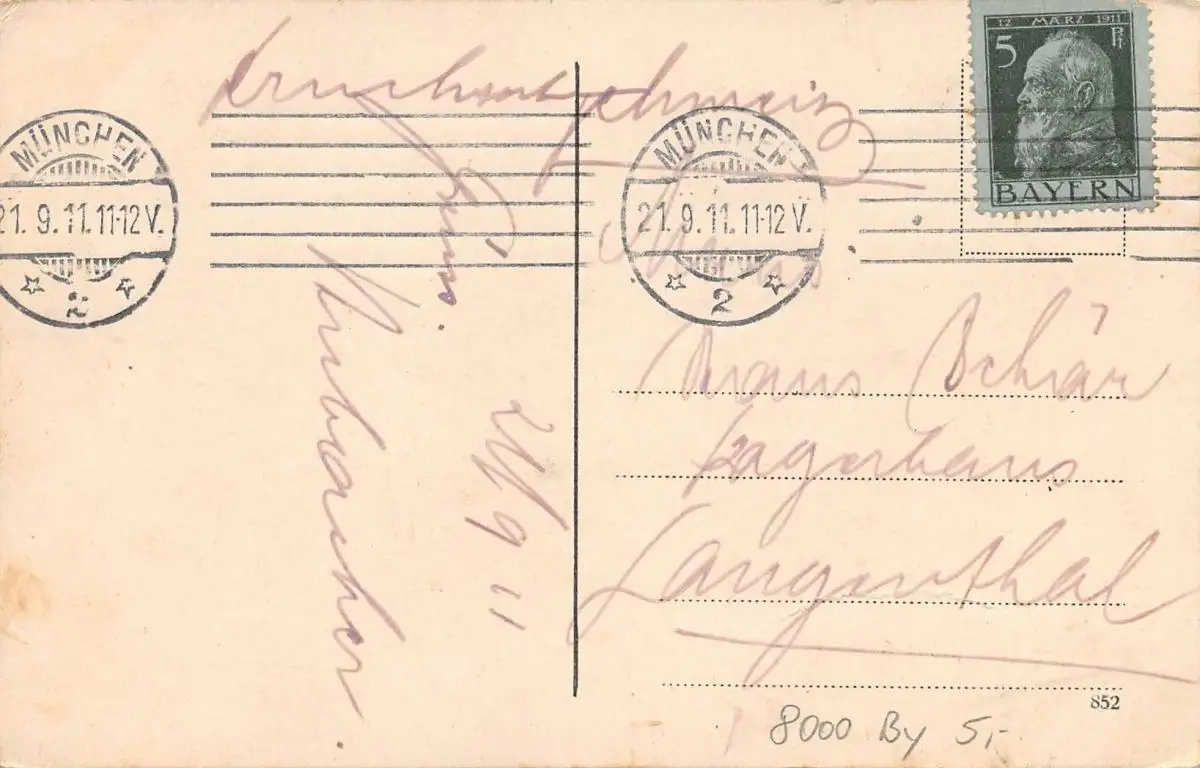 12 MÄRZ 1911
5 Pf
BAYERN
MÜNCHEN
21. 9. 11. 11-12 V.
2
MÜNCHEN
21. 9. 11. 11-12 V.
2
Drucksache Schweiz
Gruss.
21/9 11
Hans Schär
Lagerhaus
Langenthal
852
8000 By 5,-